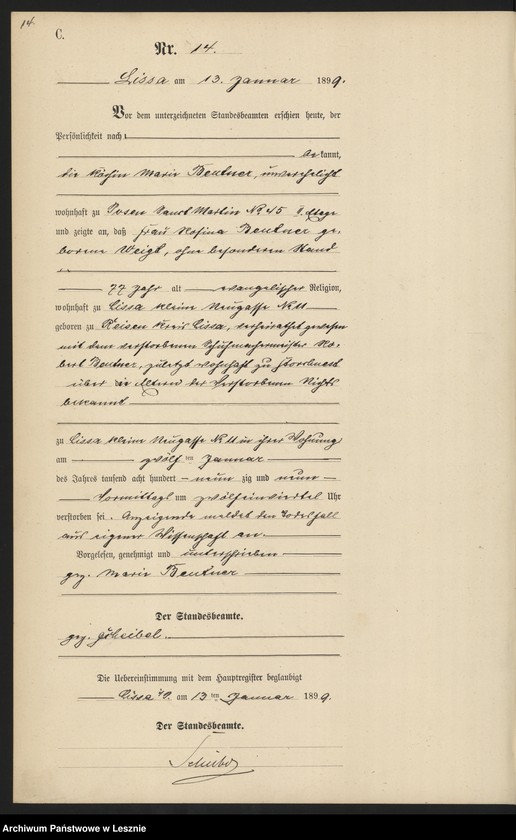 14.
C.
Nr. 14.
Lissa am 13. Januar 1899.
Vor dem unterzeichneten Standesbeamten erschien heute, der
Persönlichkeit nach
be kannt,
die Köchin Marie Beutner, unverehelicht
wohnhaft zu Posen Sanct Martin No 45 II. Etage
und zeigte an, daß Frau Rosina Beutner ge-
borene Weigt, ohne besonderen Stand
77 Jahr alt evangelischer Religion,
wohnhaft zu Lissa kleine Neugasse No 11
geboren zu Reisen Kreis Lissa, verheirathet gewesen
mit dem verstorbenen Schuhmachermeister Ro-
bert Beutner, zuletzt wohnhaft zu Storchnest
über die Eltern der Verstorbenen Nichts
bekannt
zu Lissa kleine Neugasse No 11 in ihrer Wohnung
am zwölf ten Januar
des Jahres tausend acht hundert neun zig und neun
Vormittags um zwölfeinviertel Uhr
verstorben sei. Anzeigende meldet den Todesfall
aus eigener Wissenschaft an.
Vorgelesen, genehmigt und unterschrieben
gez. Marie Beutner
Der Standesbeamte.
gez. Scheibel.
Die Uebereinstimmung mit dem Hauptregister beglaubigt
Lissa am 13 ten Januar 1899.
Der Standesbeamte.
Archiwum Państwowe w Lesznie